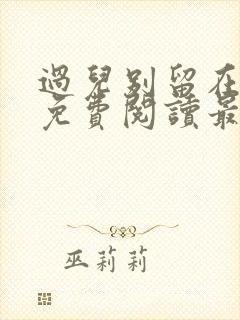 過兒別留在
免費閱讀最
巫莉莉